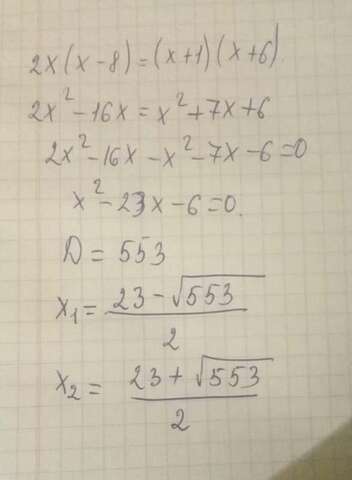 2x(x-8)=(x+1)(x+6)
2x²-16x=x²+7x+6
2x²-16x-x²-7x-6=0
x²-23x-6=0.
D=553
x₁=(23-√553)/2
x₂=(23+√553)/2